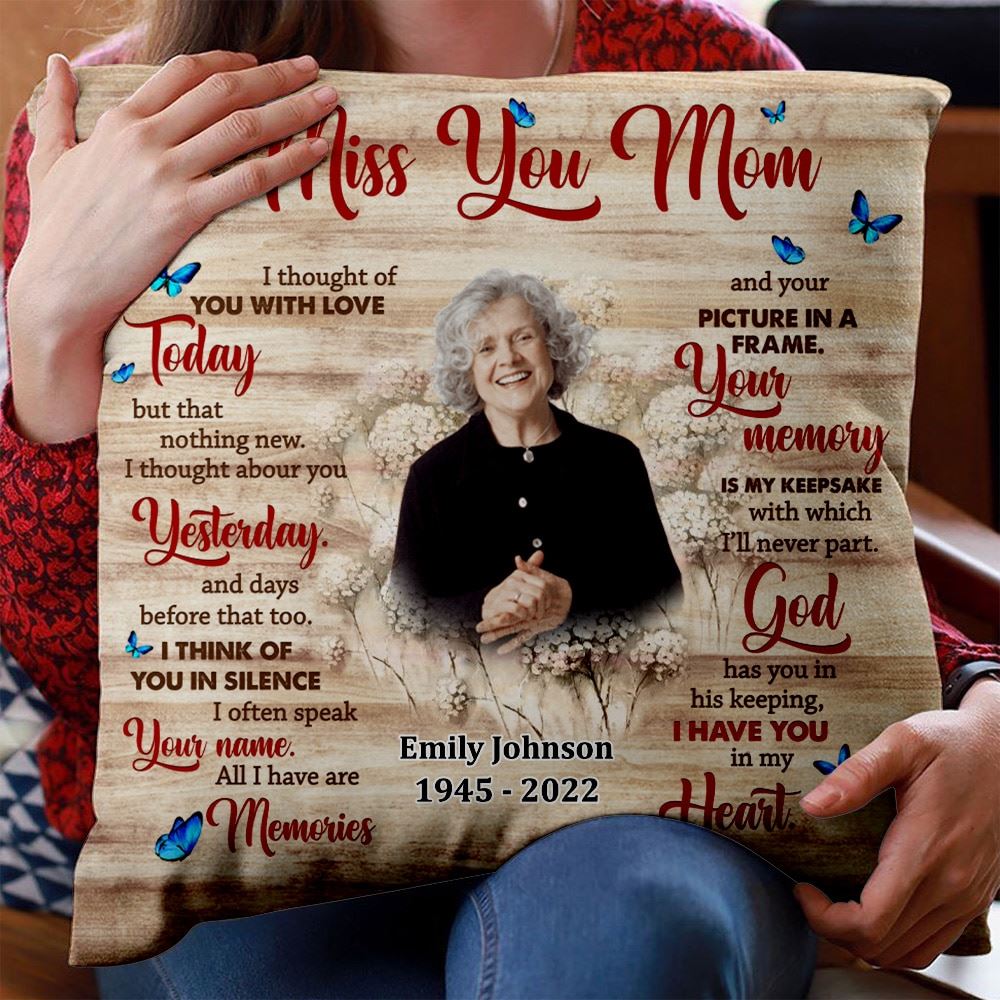 Miss You Mom
I thought of
YOU WITH LOVE
Today
but that
nothing new.
I thought abour you
Yesterday.
and days
before that too.
I THINK OF
YOU IN SILENCE
I often speak
Your name.
All I have are
Memories
and your
PICTURE IN A
FRAME.
Your
memory
IS MY KEEPSAKE
with which
I'll never part.
God
has you in
his keeping,
I HAVE YOU
in my
Heart.
Emily Johnson
1945 - 2022